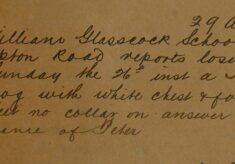 29 A
illiam Glasscock Schoo
pton Road reports losi
unday the 26th inst a
og with white chest & fo
no collar on answer
ame of Peter